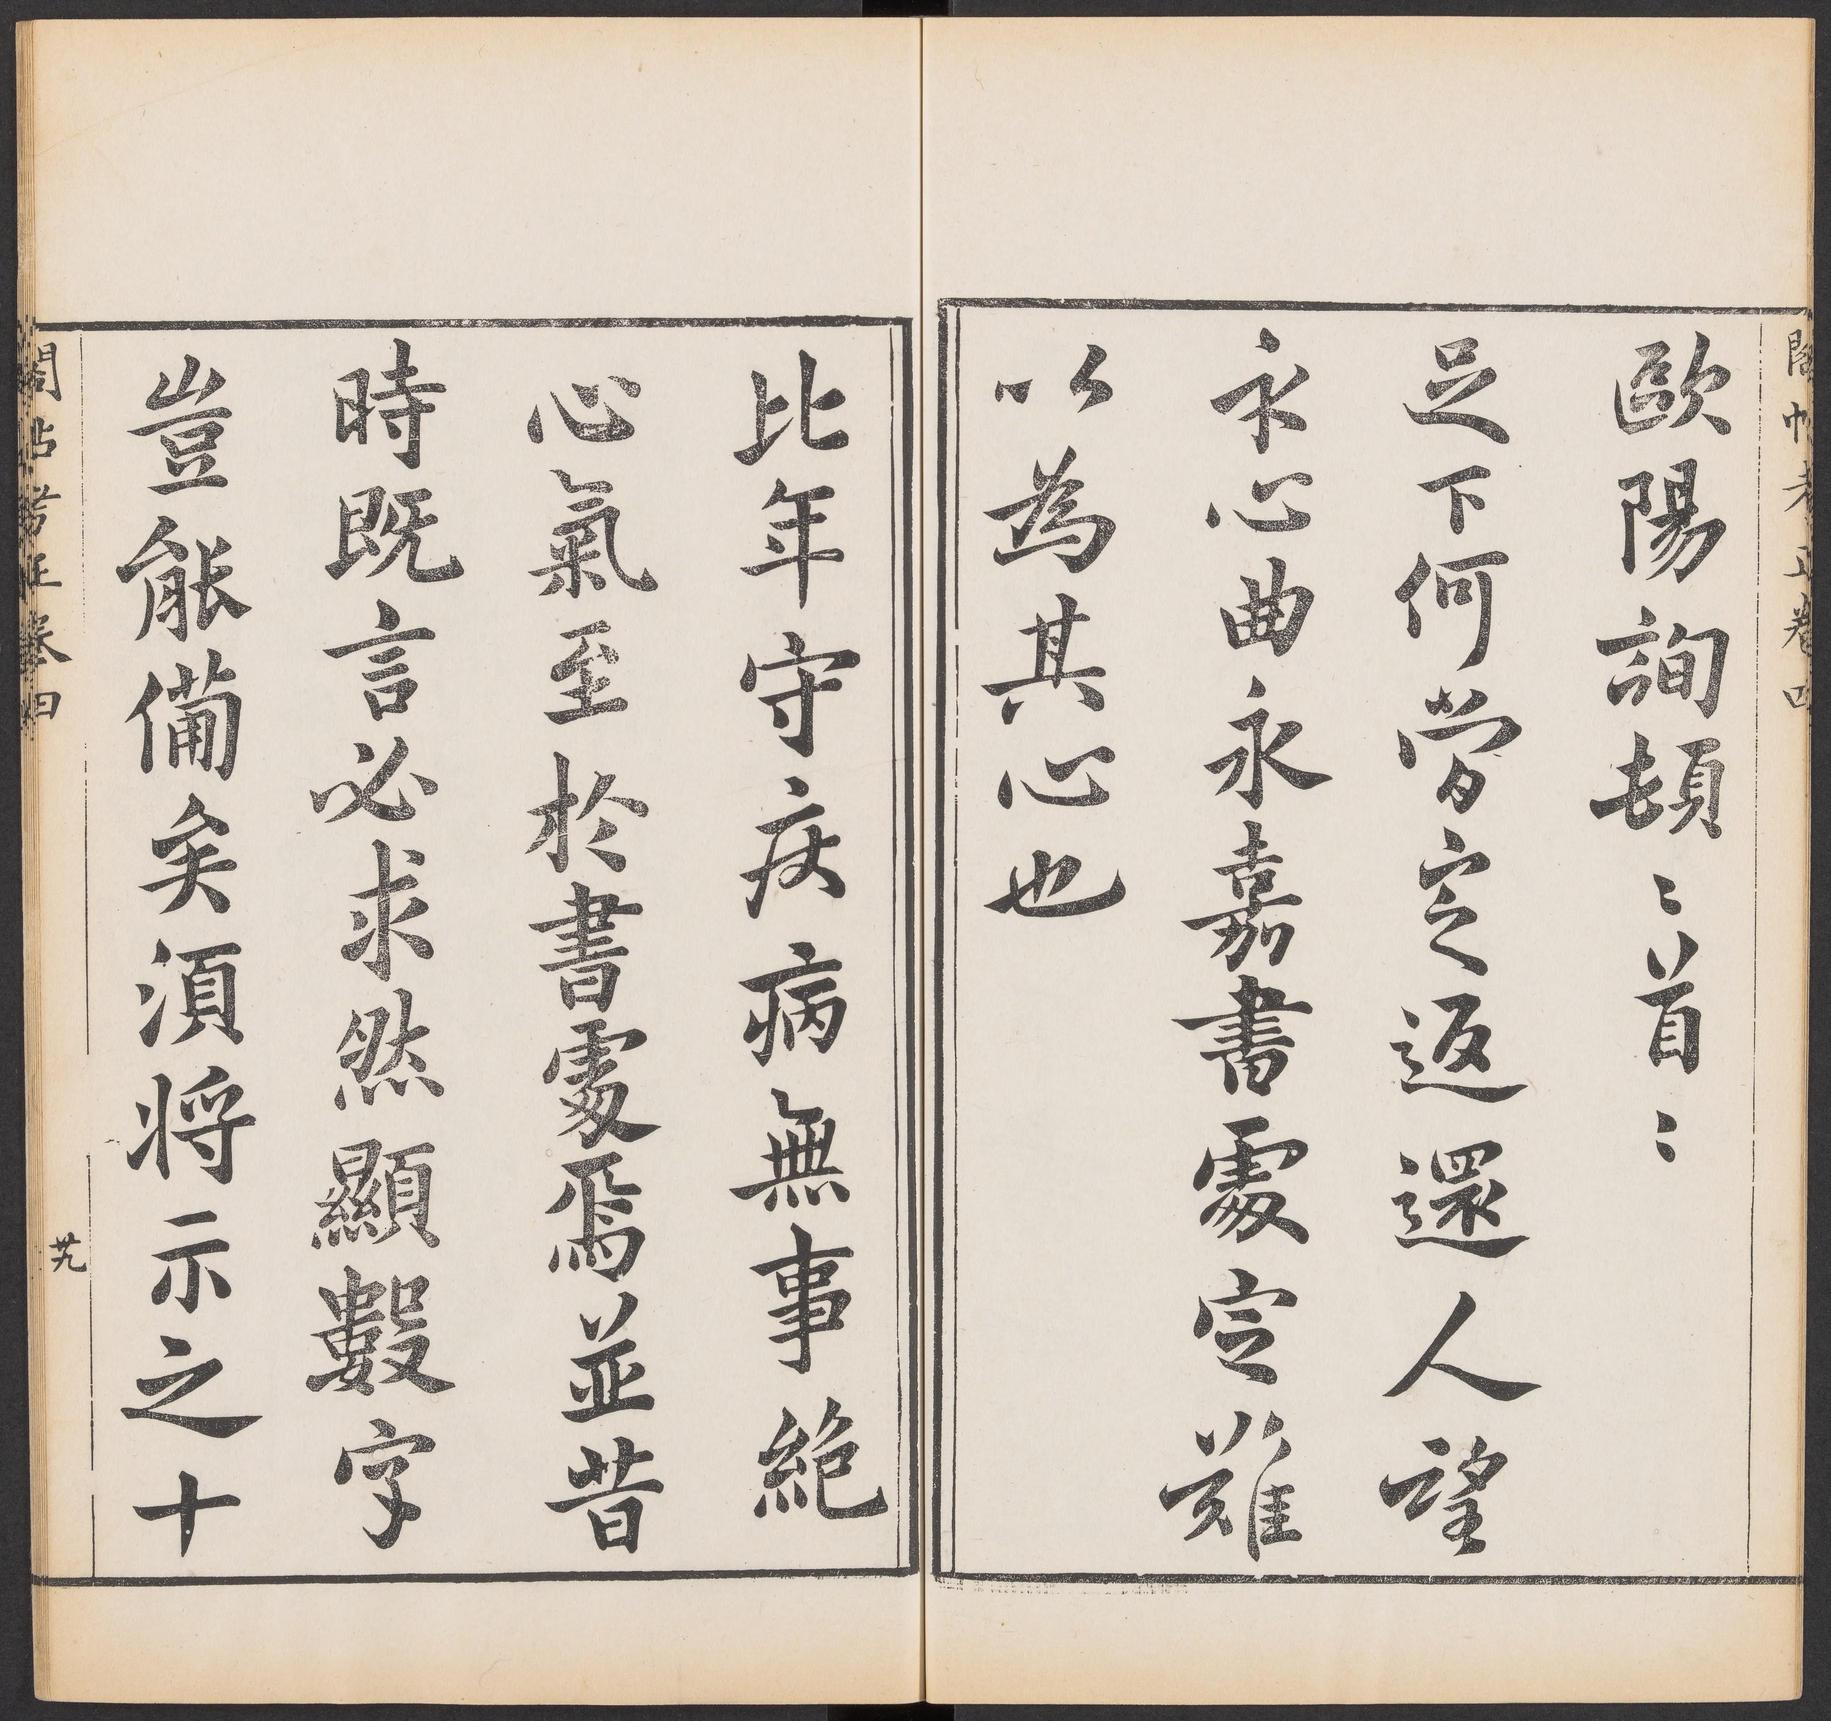 閣帖考正卷四
歐陽詢頓〻首〻
足下何當定返還人望
示心曲永嘉書處定難
以為其心也
比年守疾病無事絶
心氣至於書處焉並昔
時既言必求然顯數字
豈能備矣須将示之十
閣帖考正卷四
廿九